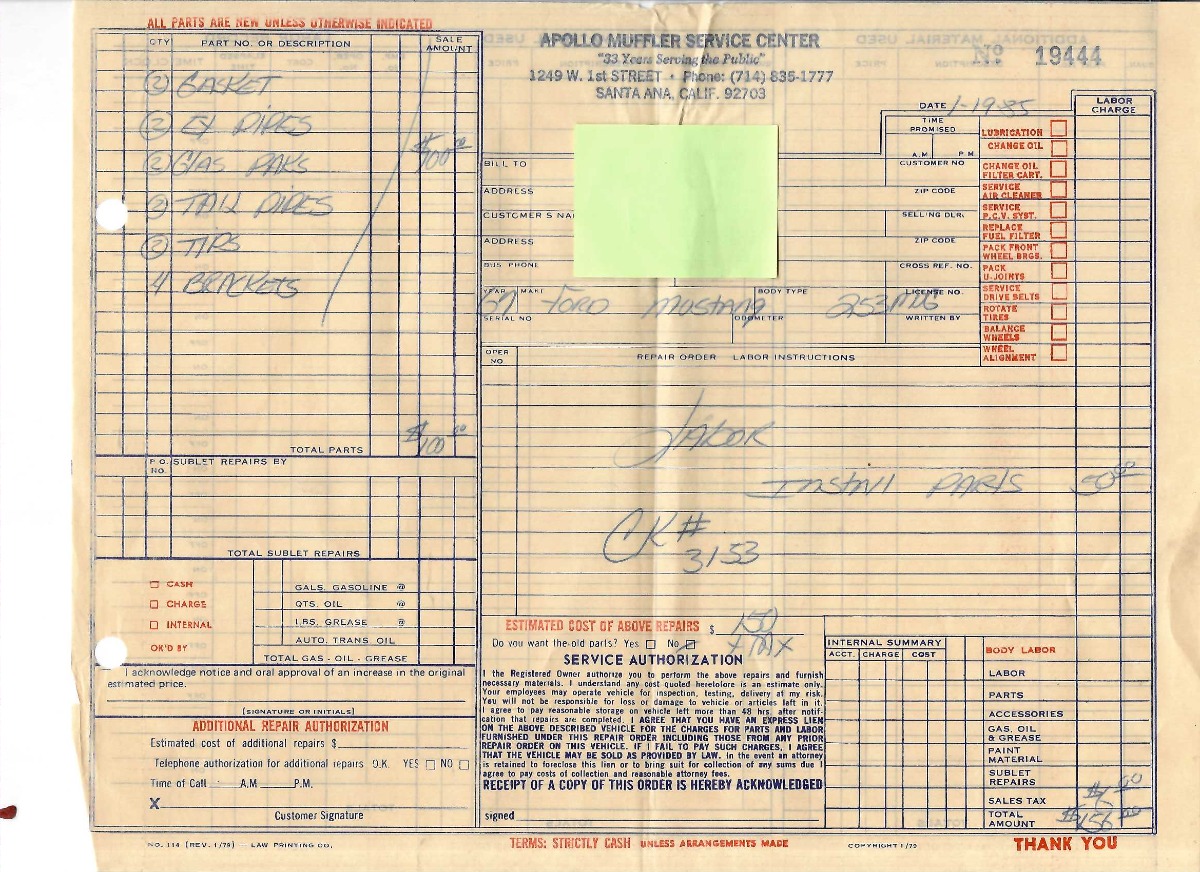 ALL PARTS ARE NEW UNLESS OTHERWISE INDICATED
QTY PART NO. OR DESCRIPTION SALE AMOUNT
(2) GASKET
(2) EX PIPES
(2) GLAS PAKS $100 00
(2) TAIL PIPES
(2) TIPS
4 BRACKETS
TOTAL PARTS $100 00
P.O. NO. SUBLET REPAIRS BY
TOTAL SUBLET REPAIRS
CASH
CHARGE
INTERNAL
OK'D BY
GALS. GASOLINE @
QTS. OIL @
LBS. GREASE @
AUTO. TRANS OIL
TOTAL GAS - OIL - GREASE
I acknowledge notice and oral approval of an increase in the original
estimated price.
(SIGNATURE OR INITIALS)
ADDITIONAL REPAIR AUTHORIZATION
Estimated cost of additional repairs $
Telephone authorization for additional repairs O.K. YES NO
Time of Call A.M P.M.
X
Customer Signature
NO. 114 (REV. 1/79) — LAW PRINTING CO.
APOLLO MUFFLER SERVICE CENTER
"33 Years Serving the Public"
1249 W. 1st STREET • Phone: (714) 835-1777
SANTA ANA, CALIF. 92703
Nº 19444
DATE 1-19-85
TIME PROMISED
A.M P M
BILL TO
CUSTOMER NO
ADDRESS
ZIP CODE
CUSTOMER'S NA
SELLING DLR.
ADDRESS
ZIP CODE
BUS PHONE
CROSS REF. NO.
YEAR MAKE BODY TYPE LICENSE NO.
67 FORD MUSTANG 253MDG
SERIAL NO ODOMETER WRITTEN BY
LABOR CHARGE
LUBRICATION
CHANGE OIL
CHANGE OIL FILTER CART.
SERVICE AIR CLEANER
SERVICE P.C.V. SYST.
REPLACE FUEL FILTER
PACK FRONT WHEEL BRGS.
PACK U-JOINTS
SERVICE DRIVE BELTS
ROTATE TIRES
BALANCE WHEELS
WHEEL ALIGNMENT
OPER NO. REPAIR ORDER LABOR INSTRUCTIONS
LABOR
INSTALL PARTS 50 00
CK#
3153
ESTIMATED COST OF ABOVE REPAIRS $ 150
Do you want the old parts? Yes No + TAX
SERVICE AUTHORIZATION
I the Registered Owner authorize you to perform the above repairs and furnish
necessary materials. I understand any cost quoted heretofore is an estimate only.
Your employees may operate vehicle for inspection, testing, delivery at my risk.
You will not be responsible for loss or damage to vehicle or articles left in it.
I agree to pay reasonable storage on vehicle left more than 48 hrs. after notif-
cation that repairs are completed. I AGREE THAT YOU HAVE AN EXPRESS LIEN
ON THE ABOVE DESCRIBED VEHICLE FOR THE CHARGES FOR PARTS AND LABOR
FURNISHED UNDER THIS REPAIR ORDER INCLUDING THOSE FROM ANY PRIOR
REPAIR ORDER ON THIS VEHICLE. IF I FAIL TO PAY SUCH CHARGES, I AGREE
THAT THE VEHICLE MAY BE SOLD AS PROVIDED BY LAW. in the event an attorney
is retained to foreclose this lien or to bring suit for collection of any sums due I
agree to pay costs of collection and reasonable attorney fees.
RECEIPT OF A COPY OF THIS ORDER IS HEREBY ACKNOWLEDGED
signed
INTERNAL SUMMARY
ACCT. CHARGE COST
BODY LABOR
LABOR
PARTS
ACCESSORIES
GAS, OIL & GREASE
PAINT MATERIAL
SUBLET REPAIRS
SALES TAX $6 00
TOTAL AMOUNT $156 00
TERMS: STRICTLY CASH UNLESS ARRANGEMENTS MADE
COPYRIGHT 1/79
THANK YOU